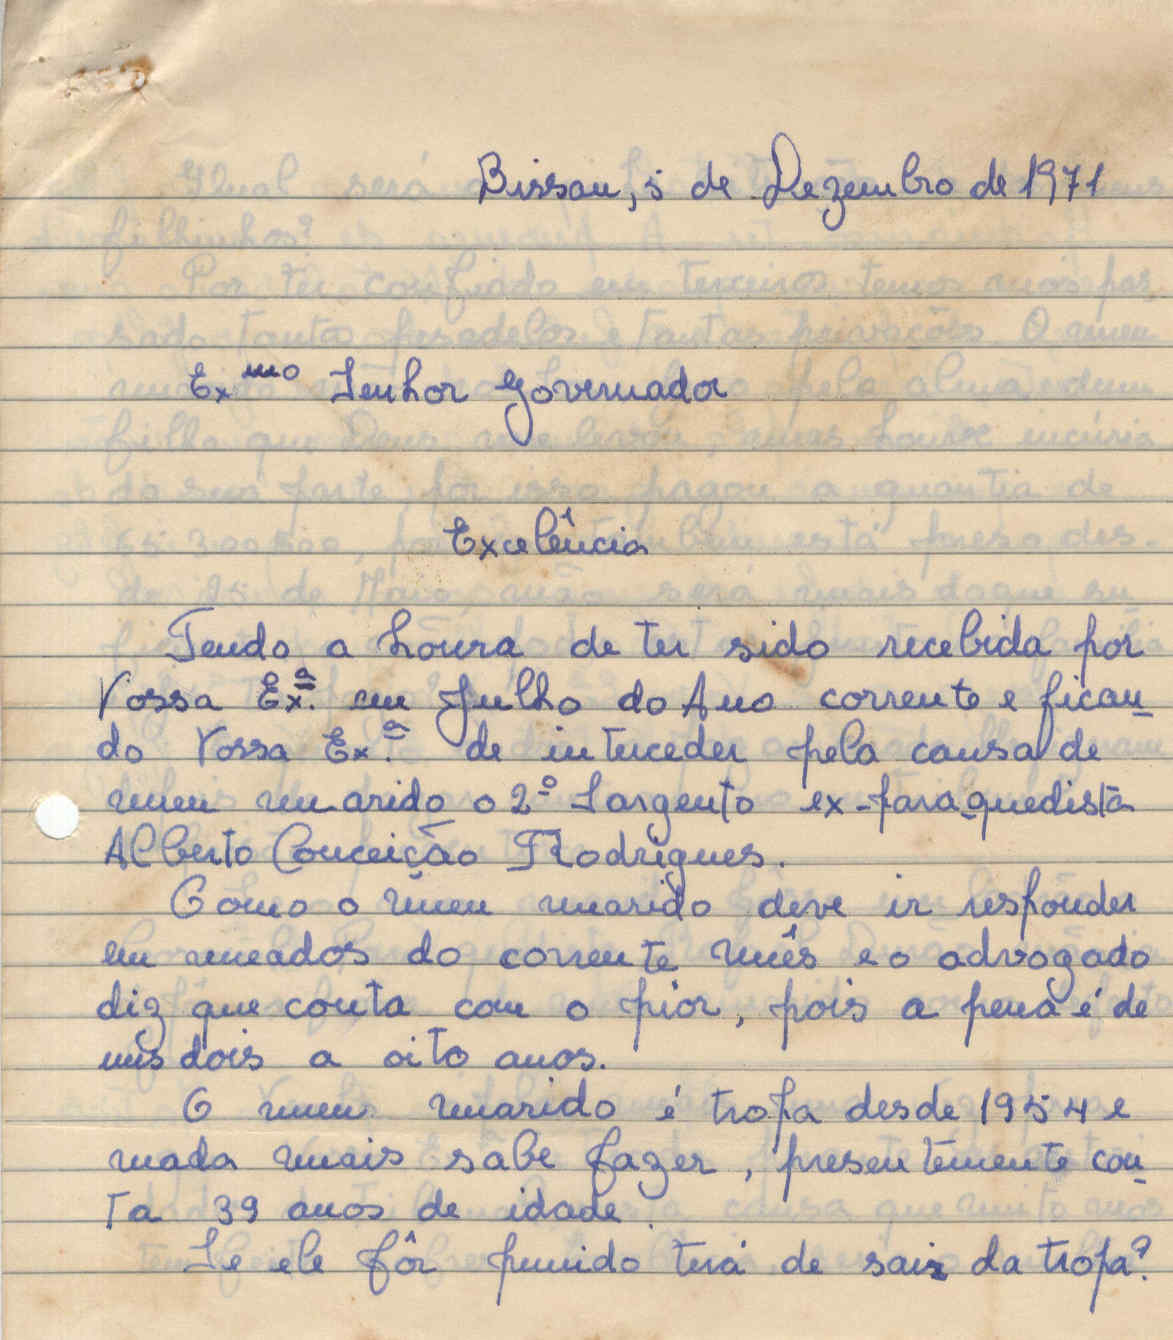 Bissau, 5 de Dezembro de 1971
Exmo Senhor Governador
Excelência
Tendo a honra de ter sido recebida por
Vossa Ex.ª em Julho do Ano corrente e fican-
do Vossa Ex.ª de interceder pela causa de
meu marido o 2º Sargento ex-paraquedista
Alberto Conceição Rodrigues.
Como o meu marido deve ir responder
em meados do corrente mês e o advogado
diz que conta com o pior, pois a pena é de
uns dois a oito anos.
O meu marido é tropa desde 1954 e
nada mais sabe fazer, presentemente con-
ta 39 anos de idade.
Se ele fôr punido terá de sair da tropa?